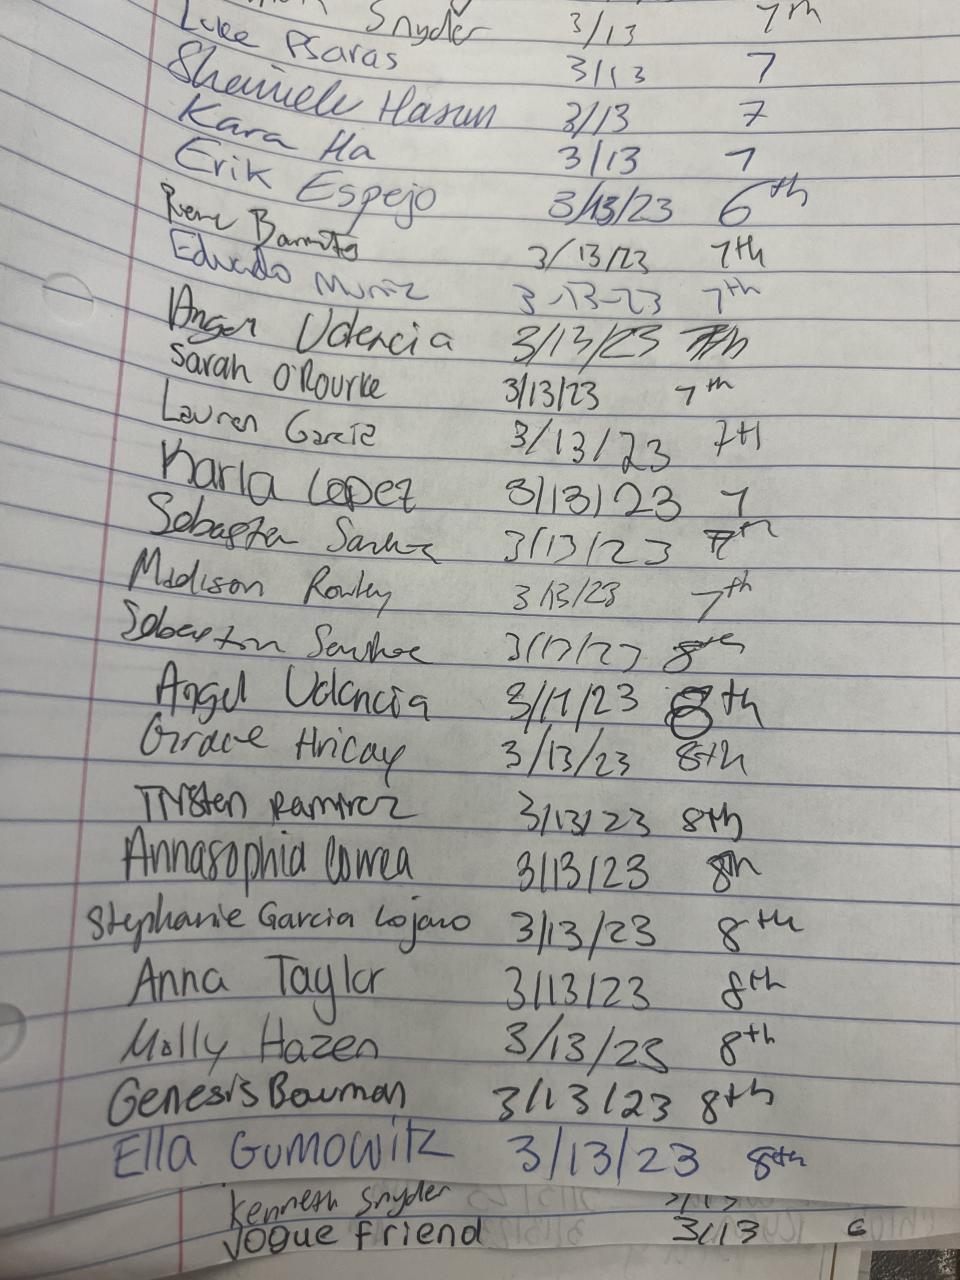 Snyder 3/13 7th
Luke Psaras 3/13 7
Hasun 3/13 7
Kara Ha 3/13 7
Erik Espejo 3/13/23 6th
3/13/23 7th
Eduardo Muniz 3-13-23 7th
Angel Valencia 3/13/23 7th
Sarah O'Rourke 3/13/23 7th
Lauren Garcia 3/13/23 7th
Karla Lopez 3/13/23 7
Sebastian 3/13/23 7th
Madison Rowley 3/13/23 7th
Sebastian 8th
Angel Valencia 8th
Grace Hricay 3/13/23 8th
Trysten Ramirez 3/13/23 8th
Annasophia Correa 3/13/23 8th
Stephanie Garcia Lojano 3/13/23 8th
Anna Taylor 3/13/23 8th
Molly Hazen 3/13/23 8th
Genesis Bowman 3/13/23 8th
Ella Gumowitz 3/13/23 8th
Kenneth Snyder
Vogue Friend 3/13 6